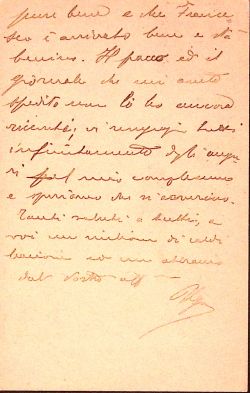 pure bene e che France-
sco è arrivato bene e sta
benino. Il pacco ed il
giornale che mi avete
spedito non lo ho ancora
ricevuti, vi ringrazio tutti
infinitamente degli auguri
pel mio compleanno
e speriamo che si avverino.
Tanti saluti a tutti, a
voi un milione di caldi
bacioni ed un abbraccio
dal vostro aff